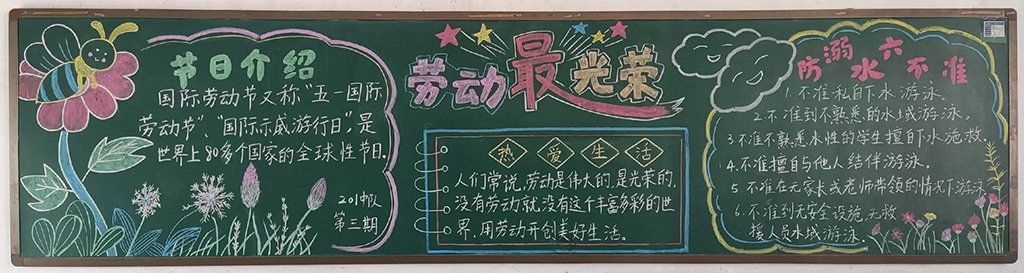 节日介绍
国际劳动节又称“五一国际
劳动节”、“国际示威游行日”,是
世界上80多个国家的全球性节日。
201中队
第三期
劳动最光荣
热爱生活
人们常说,劳动是伟大的,是光荣的,
没有劳动就没有这个丰富多彩的世
界,用劳动开创美好生活。
防溺水六不准
1.不准私自下水游泳。
2.不准到不熟悉的水域游泳。
3.不准不熟悉水性的学生擅自下水施救。
4.不准擅自与他人结伴游泳。
5.不准在无家长或老师带领的情况下游泳
6.不准到无安全设施、无救
援人员水域游泳